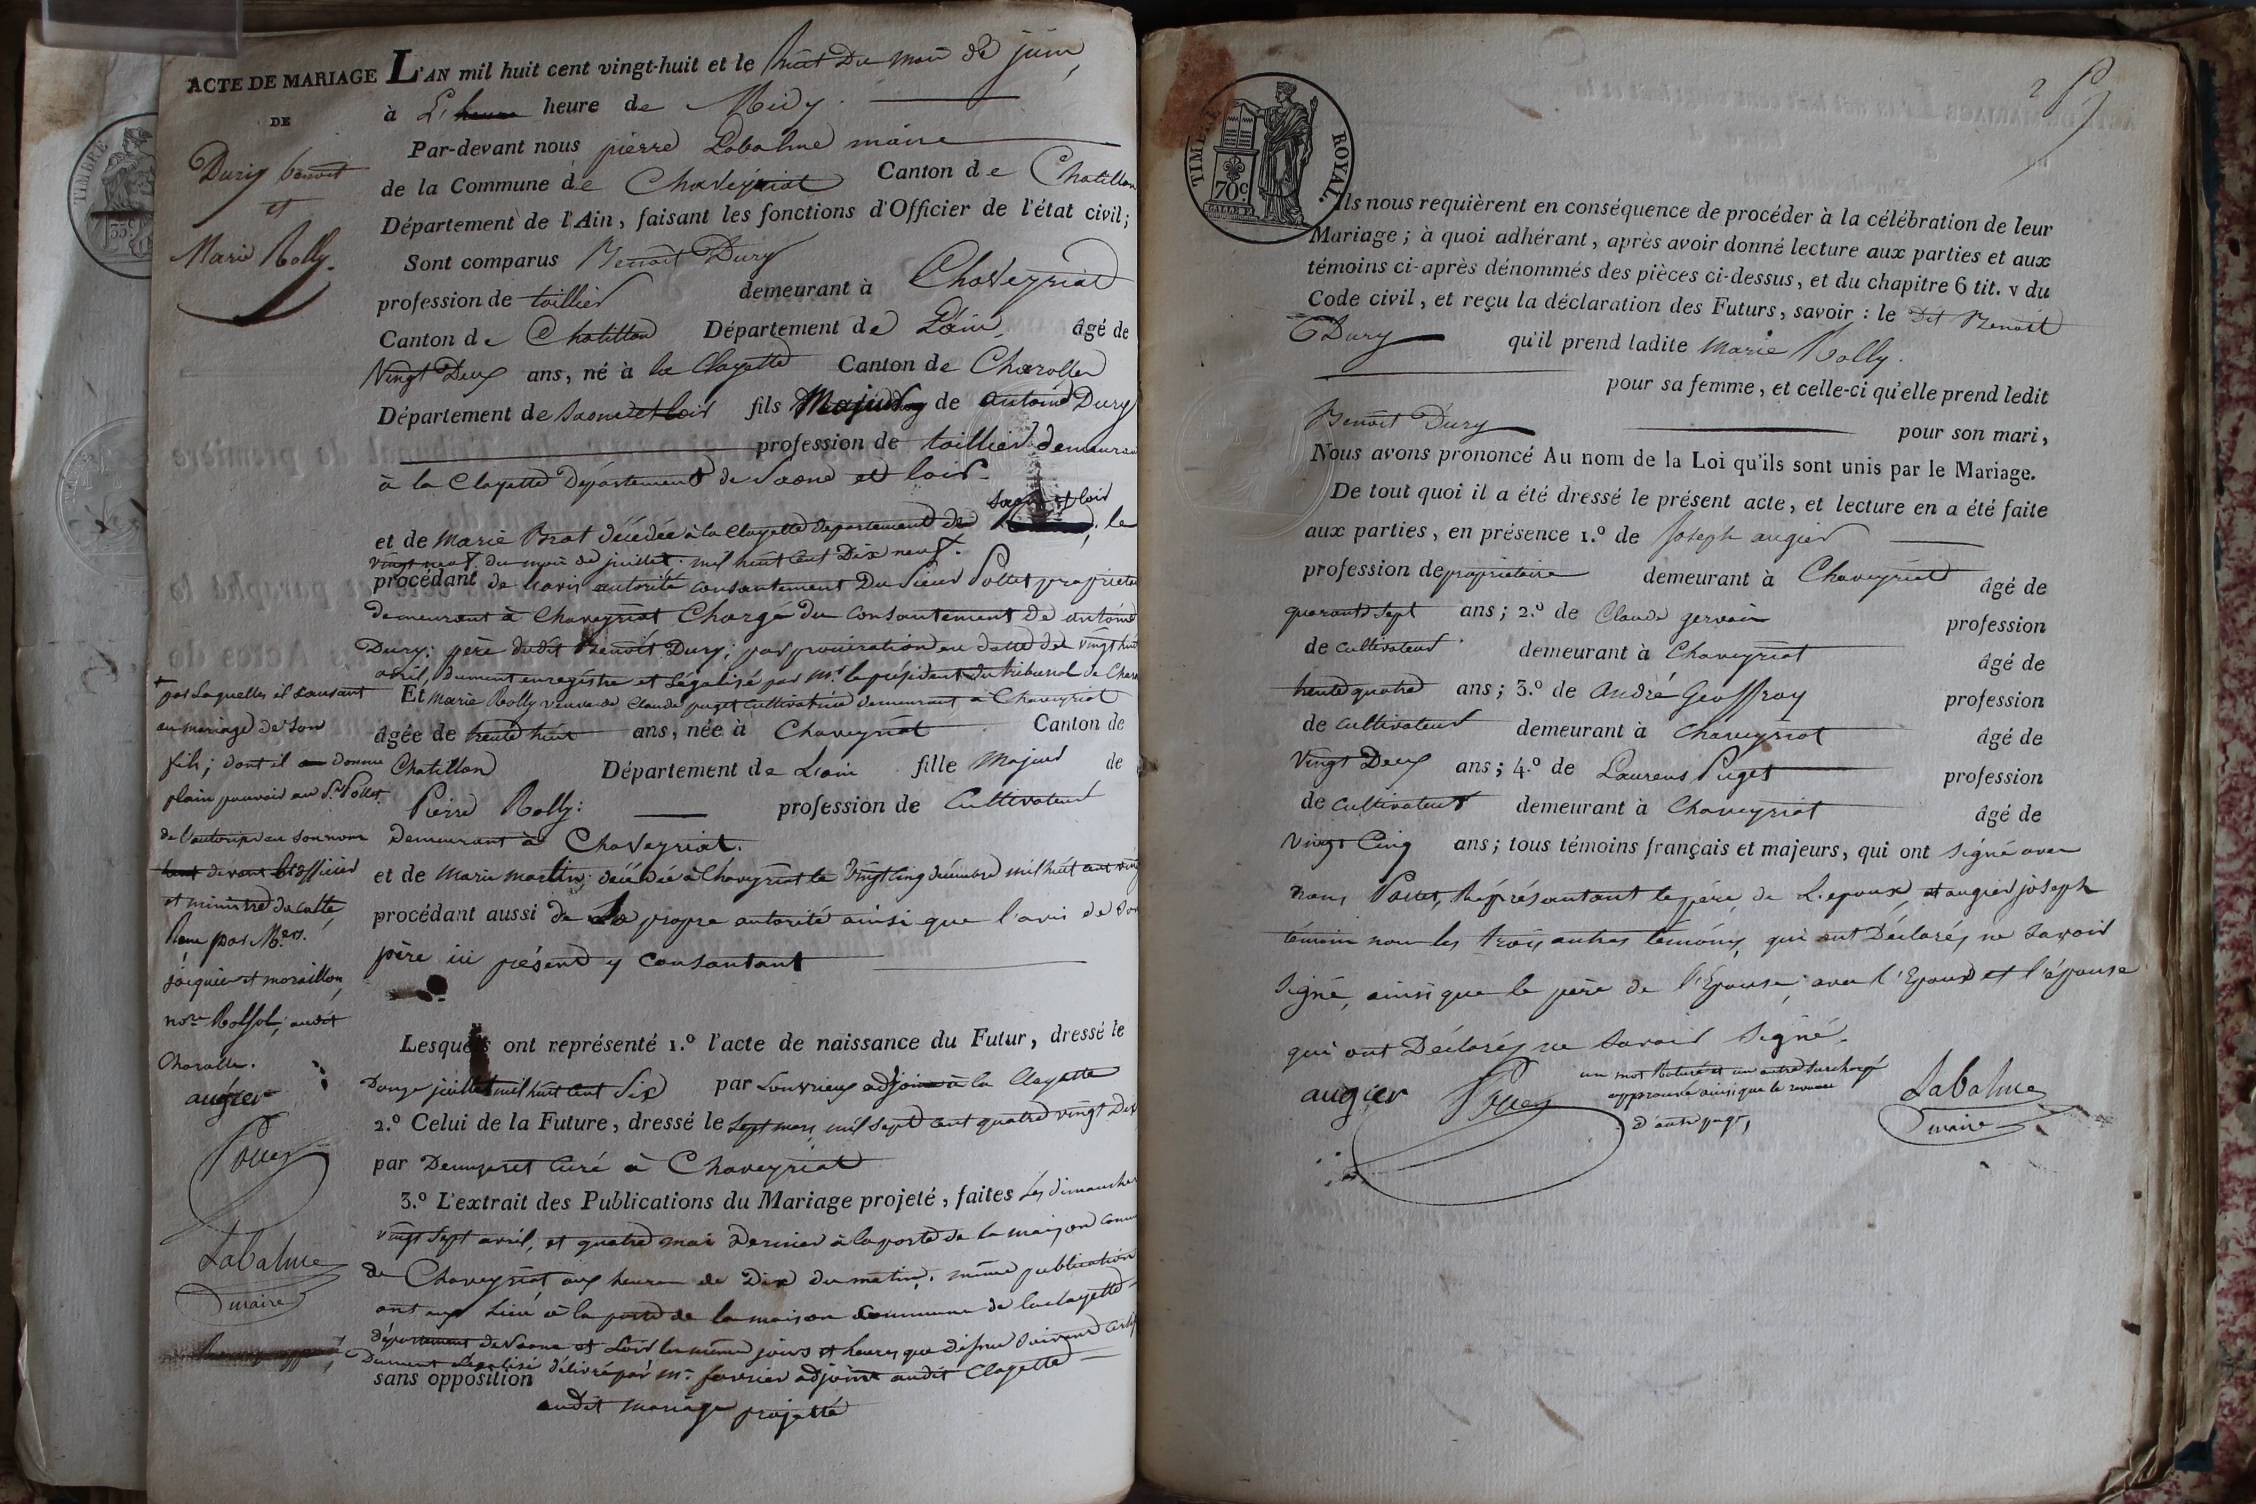 ACTE DE MARIAGE
DE
Dury benoît
et
Marie Rolly.
L'AN mil huit cent vingt-huit et le huit Du moi de juin,
à L' heure de Midy.
Par-devant nous pierre Labalme maire
de la Commune de Chaveyriat Canton de Chatillon
Département de l'Ain, faisant les fonctions d'Officier de l'état civil;
Sont comparus Benoit Dury
profession de taillier demeurant à Chaveyriat
Canton de Chatillon Département de L'ain, âgé de
Vingt Deux ans, né à la Clayette Canton de Charolles
Département de Saone et loir fils Majeur de antoine Dury
profession de taillier demeurant
à la Clayette Département de Saone et loir.
saone et loir
et de Marie Brat décédée à la Clayette departement de , le
vingt neuf du mois de juillet mil huit cent Dix neuf.
procédant de l'avis autorité consantement Du Sieur Pollet propriétaire
demeurant à Chaveyriat Chargé du consantement De antoine
Dury, père dudit Benoît Dury, par procuration en datte del vingt huit
avril, dument enregistre et Légalisé par Mr le président du tribunal de Charolle
Et Marie Rolly veuve de Claude puget Cultivatrice demeurant à Chaveyriat
âgée de trente huit ans, née à Chaveyriat Canton de
Chatillon Département de L'ain fille Majeur de
Pierre Rolly: profession de Cultivateur
Demeurant à Chaveyriat.
et de Marie Martin, décédée à Chaveyriat le Vingt Cinq décembre mil huit cent vingt
procédant aussi de Sa propre autorité ainsi que l'avis de son
père ici présend y consantant
Lesquels ont représenté 1.º l'acte de naissance du Futur, dressé le
Douze juillet mil huit cent Six par Louvrieux adjoint à la Clayette
2.º Celui de la Future, dressé le Sept mars mil sept cent quatre vingt Dix
par Demyaret Curé à Chaveyriat
3.º L'extrait des Publications du Mariage projeté, faites Les dimanches
vingt Sept avril, et quatre mai Dernier à la porte de la maison commune
de Chaveyriat aux heures de Dix du matin, même publication
ont aux Lieu à la porte de la maison Commune de la clayette
département de Saone et Loir les même jours et heures que dessue Suivant certif
Dument Légalisé délivré par Mr favrier adjoint audit Clayette
sans opposition
audit mariage projetté
+ par Laquelles il Consant
au mariage de Son
fils; dont il donne
plain pouvoir au Sr Pollet
de l'autorisé en son nom
devant Et officier
et ministre du culte
Reçue par Mers.
jacquier et moraillon
nore Rolsol, audit
Charolle.
augier
Pollet
Labalme
maire
2
TIMBRE ROYAL.
70c
Ils nous requièrent en conséquence de procéder à la célébration de leur
Mariage; à quoi adhérant, après avoir donné lecture aux parties et aux
témoins ci-après dénommés des pièces ci-dessus, et du chapitre 6 tit. v du
Code civil, et reçu la déclaration des Futurs, savoir: le Dit Benoit
Dury qu'il prend ladite Marie Rolly.
pour sa femme, et celle-ci qu'elle prend ledit
Benoît Dury pour son mari,
Nous avons prononcé Au nom de la Loi qu'ils sont unis par le Mariage.
De tout quoi il a été dressé le présent acte, et lecture en a été faite
aux parties, en présence 1.º de Joseph augier
profession de propriétaire demeurant à Chaveyriat âgé de
quarante Sept ans; 2.º de Claude gervais profession
de cultivateur demeurant à Chaveyriat âgé de
trente quatre ans; 3.º de André Geoffray profession
de cultivateur demeurant à Chaveyriat âgé de
Vingt Deux ans; 4.º de Laurens Puget profession
de cultivateur demeurant à Chaveyriat âgé de
Vingt Cinq ans; tous témoins français et majeurs, qui ont signé avec
nous, Pollet, Représantant le père de L'epoux, et augier joseph
témoin non les trois autres témoins, qui ont Déclarés ne savoir
signé, ainsi que le père de l'Epouse, avec l'Epoux et l'épouse
qui ont Déclarés ne Savoir Signé.
un mot Raturé et un autre Surchargé
approuvé ainsi que le renvoi
d'autre page,
augier
Pollet
Labalme
maire